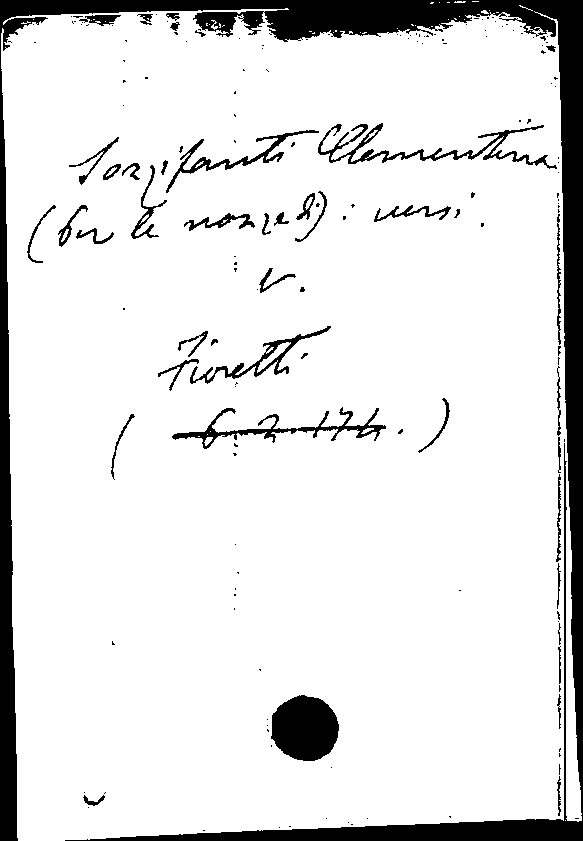 Sorzifanti Clementina
(per le nozze di): versi.
V.
Fioretti
( 6.2.174. )